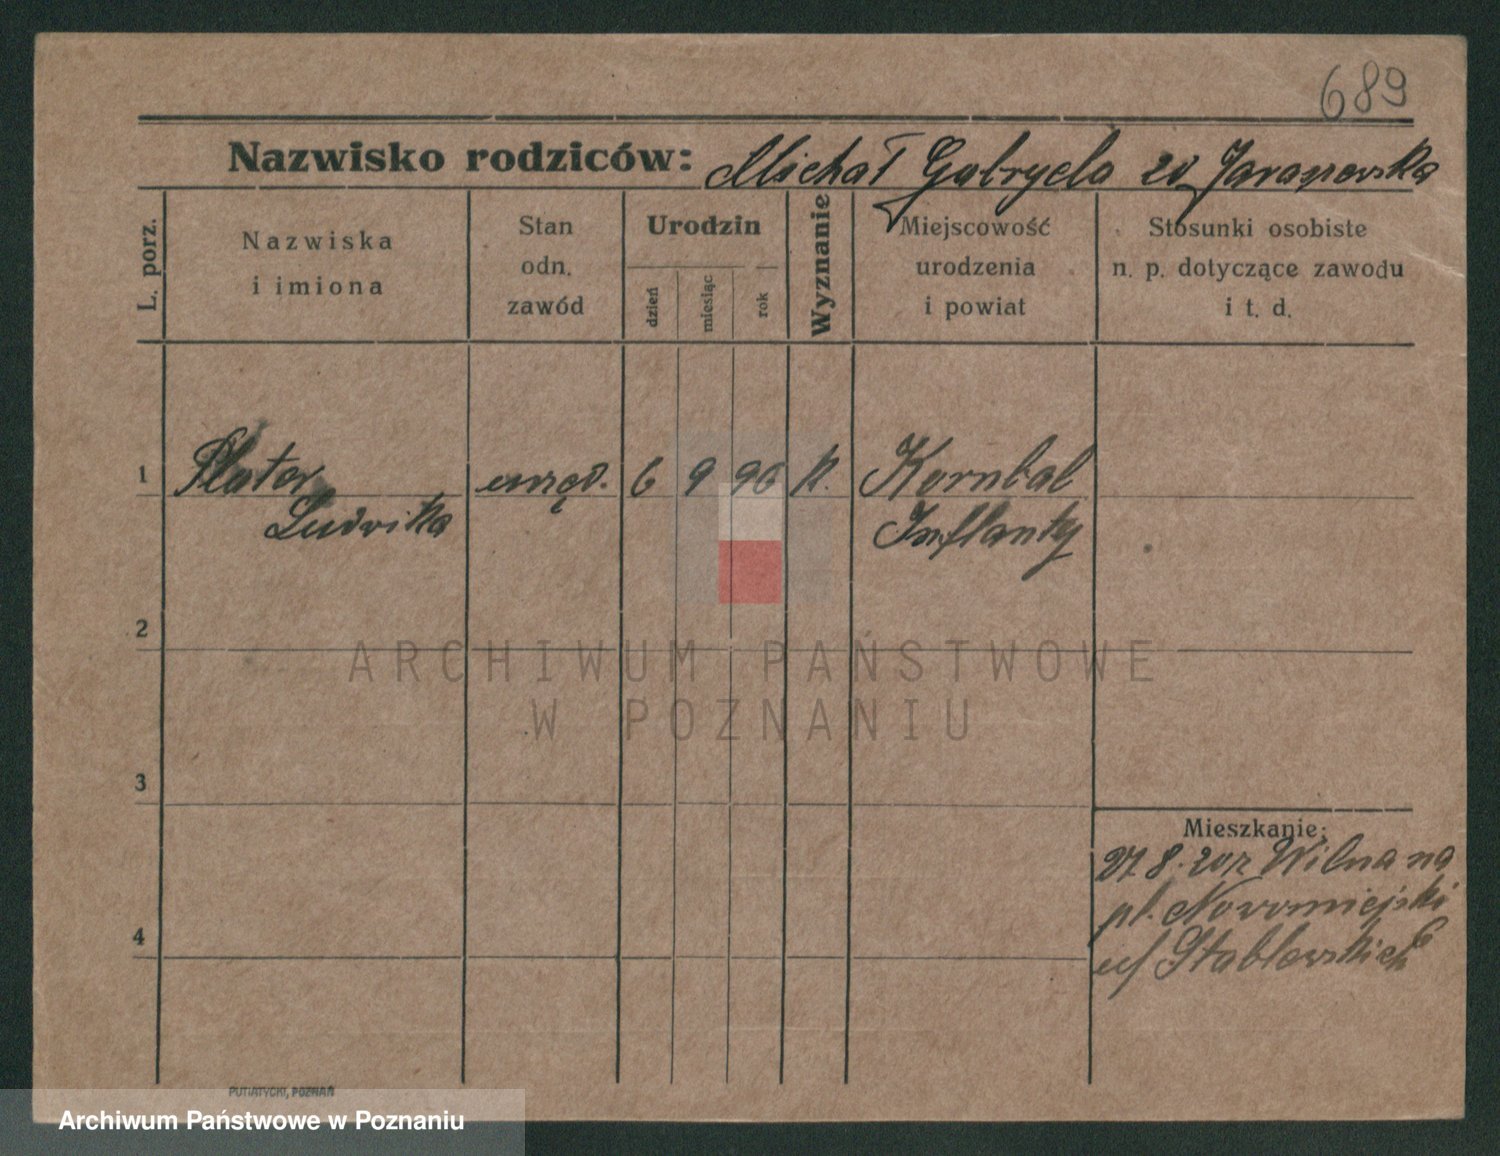 689
Nazwisko rodziców: Michał Gabryela zd Jarasowska
L. porz.
Nazwiska
i imiona
Stan
odn.
zawód
Urodzin
dzień
miesiąc
rok
Wyznanie
Miejscowość
urodzenia
i powiat
Stosunki osobiste
n. p. dotyczące zawodu
i t. d.
1 Plater urzęd. 6 9 96 k. Kombal
Ludwika Inflanty
2
ARCHIWUM PAŃSTWOWE
W POZNANIU
3
Mieszkanie:
27. 8. 20 z Wilna na
pl. Nowomiejski
6
u/ Stablewskich
4
PUTIATYCKI, POZNAŃ
Archiwum Państwowe w Poznaniu